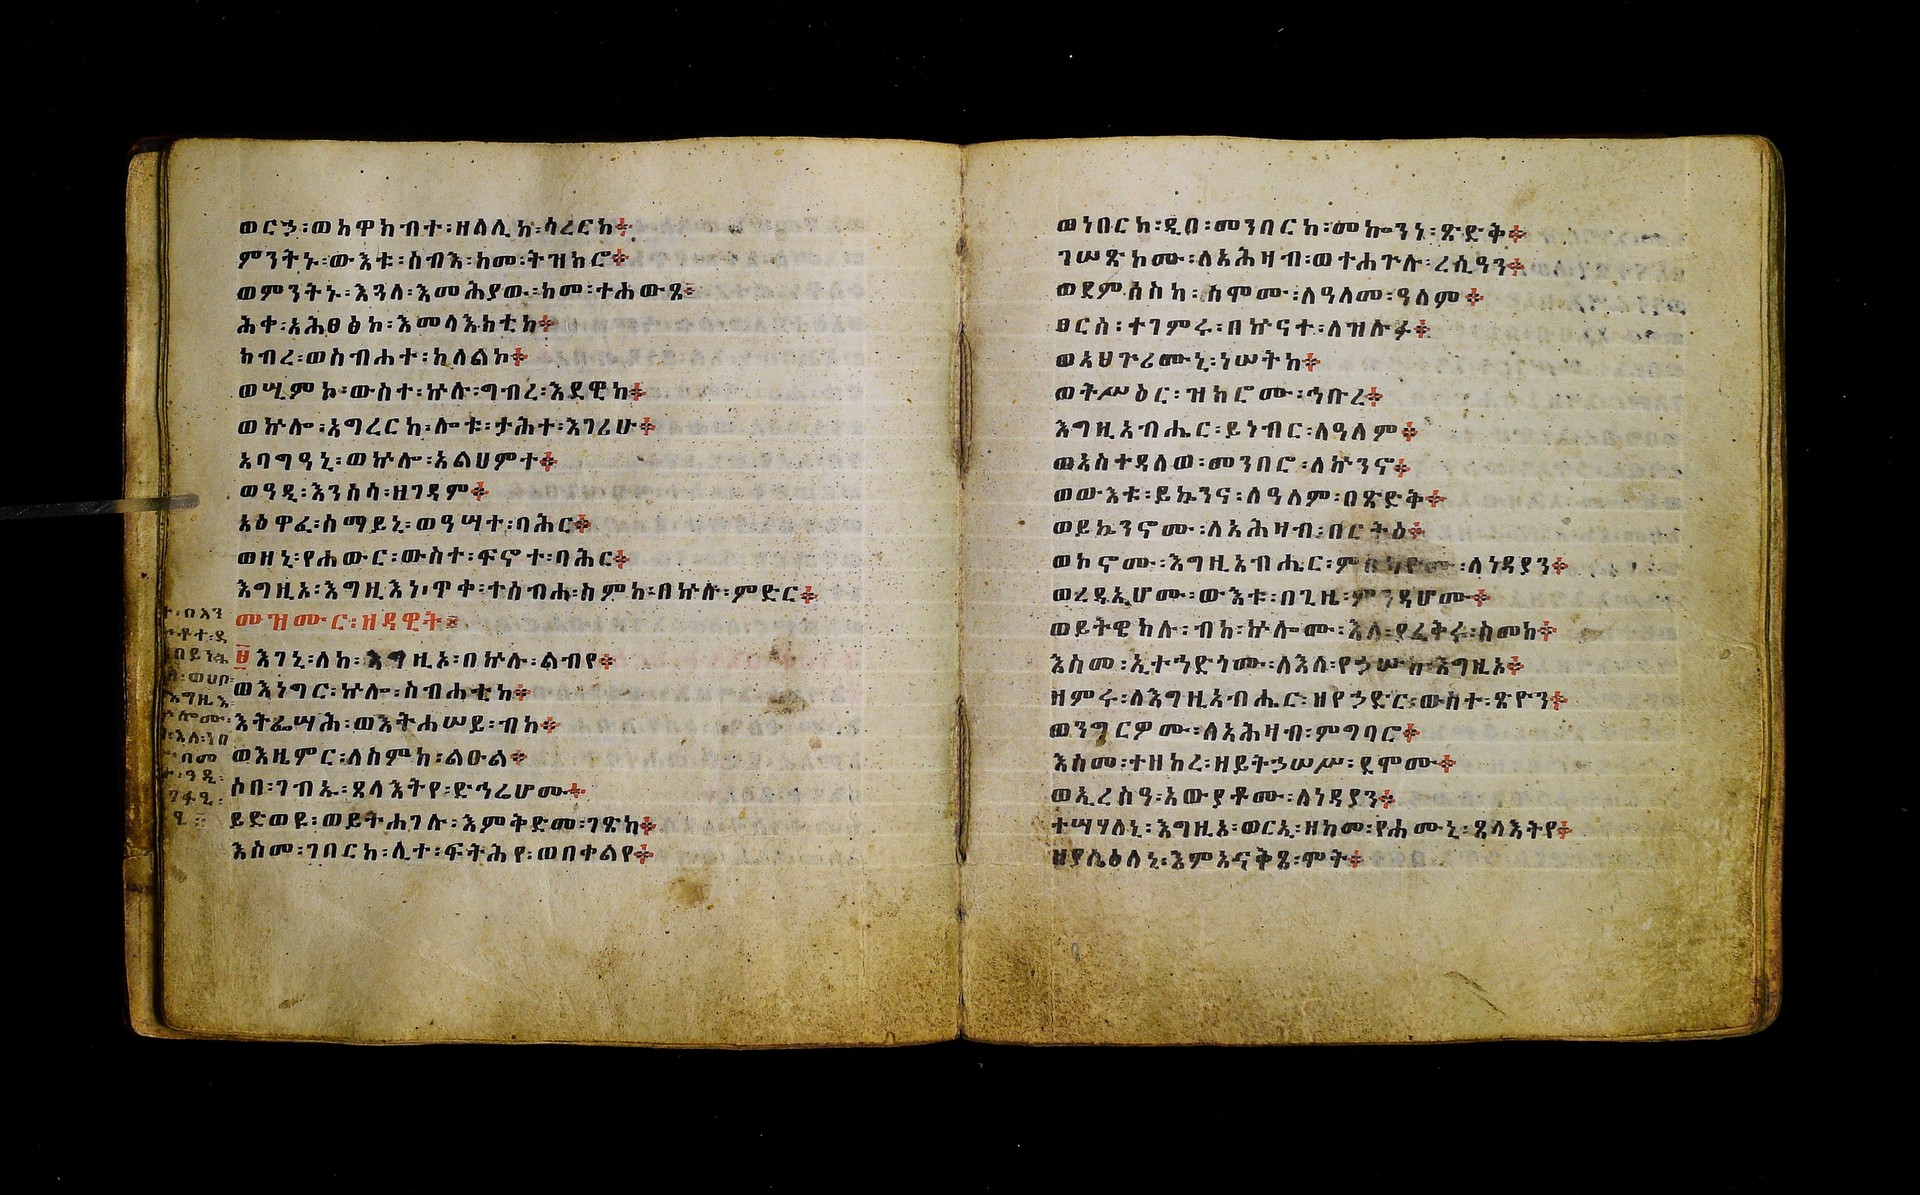 ወርኃ፡ወከዋክብተ፡ዘለሊከ፡ሳረርከ፨
ምንትኑ፡ውእቱ፡ሰብእ፡ከመ፡ትዝክሮ፨
ወምንትኑ፡እጓለ፡እመሕያው፡ከመ፡ተሐውጾ፨
ሕቀ፡አሕፀፅኮ፡እመላእክቲከ፨
ክብረ፡ወስብሐተ፡ከለልኮ፨
ወሢምኮ፡ውስተ፡ኵሉ፡ግብረ፡እደዊከ፨
ወኵሎ፡አግረርከ፡ሎቱ፡ታሕተ፡እገሪሁ፨
አባግዓኒ፡ወኵሎ፡አልህምተ፨
ወዓዲ፡እንስሳ፡ዘገዳም፨
አዕዋፈ፡ሰማይኒ፡ወዓሣተ፡ባሕር፨
ወዘኒ፡የሐውር፡ውስተ፡ፍኖተ፡ባሕር፨
እግዚኦ፡እግዚእነ፡ጥቀ፡ተሰብሐ፡ስምከ፡በኵሉ፡ምድር፨
መዝሙር፡ዘዳዊት፨
፱ እገኒ፡ለከ፡እግዚኦ፡በኵሉ፡ልብየ፨
ወእነግር፡ኵሎ፡ስብሐቲከ፨
እትፌሣሕ፡ወእትሐሠይ፡ብከ፨
ወእዜምር፡ለስምከ፡ልዑል፨
ሶበ፡ገብኡ፡ጸላእትየ፡ድኅሬሆሙ፨
ይድወዩ፡ወይትሐጐሉ፡እምቅድመ፡ገጽከ፨
እስመ፡ገበርከ፡ሊተ፡ፍትሕየ፡ወበቀልየ፨
ወነበርከ፡ዲበ፡መንበርከ፡መኰንነ፡ጽድቅ፨
ገሠጽኮሙ፡ለአሕዛብ፡ወተሐጕሉ፡ረሲዓን፨
ወደምሰስከ፡ስሞሙ፡ለዓለመ፡ዓለም፨
ፀርሰ፡ተገምሩ፡በኵናተ፡ለዝሉፉ፨
ወአህጉሪሙኒ፡ነሠትከ፨
ወትሥዕር፡ዝክሮሙ፡ኅቡረ፨
እግዚአብሔር፡ይነብር፡ለዓለም፨
ወአስተዳለወ፡መንበሮ፡ለኵንኖ፨
ወውእቱ፡ይኴንና፡ለዓለም፡በጽድቅ፨
ወይኴንኖሙ፡ለአሕዛብ፡በርትዕ፨
ወኮኖሙ፡እግዚአብሔር፡ምስካዮሙ፡ለነዳያን፨
ወረዳኢሆሙ፡ውእቱ፡በጊዜ፡ምንዳቤሆሙ፨
ወይትዌከሉ፡ብከ፡ኵሎሙ፡እለ፡ያፈቅሩ፡ስመከ፨
እስመ፡ኢተኀድጎሙ፡ለእለ፡የኃሡከ፡እግዚኦ፨
ዘምሩ፡ለእግዚአብሔር፡ዘየኃድር፡ውስተ፡ጽዮን፨
ወንግርዎሙ፡ለአሕዛብ፡ምግባሮ፨
እስመ፡ተዘከረ፡ዘይትኃሠሥ፡ደሞሙ፨
ወኢረስዓ፡አውያቶሙ፡ለነዳያን፨
ተሣሃለኒ፡እግዚኦ፡ወርኢ፡ዘከመ፡የሐሙኒ፡ጸላእትየ፨
ዘያሌዕለኒ፡እምአናቅጸ፡ሞት፨